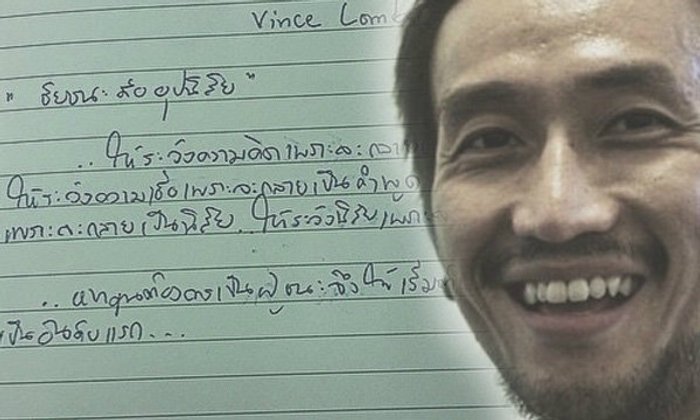 Vince Lom
" ชัยชนะ คือ อุปนิสัย "
.. ให้ระวังความคิด เพราะจะกลา
ให้ระวังความเชื่อ เพราะจะกลายเป็นคำพูด
เพราะจะกลายเป็นนิสัย ให้ระวังนิสัย เพรา
.. หากคุณต้องการเป็นผู้ชนะ จึงให้เริ่ม
เป็นอันดับแรก...